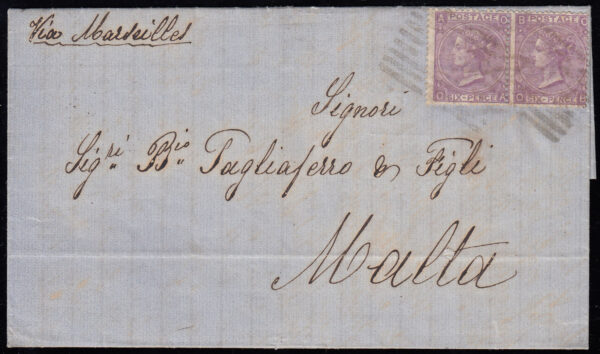 Via Marseilles
A POSTAGE O
O SIX-PENCE A
B POSTAGE O
O SIX-PENCE B
Signori
Sigri Bio Tagliaferro & Figli
Malta